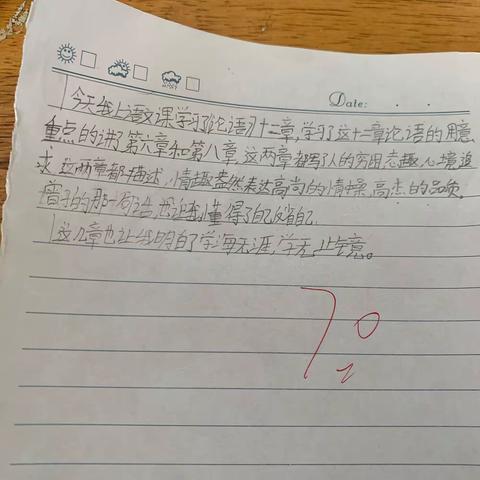 Date:
今天线上语文课学习了论语》十二章,学习了这十二章论语的用意,
重点的讲了第六章和第八章,这两章都写了人的穷困志趣,心境追
求,这两章都描述,情趣盎然表达高尚的情操,高杰的品质
的那一句话,也让我懂得了自己反省自己
这几章也让我明白了学海无涯,学无止境。
70